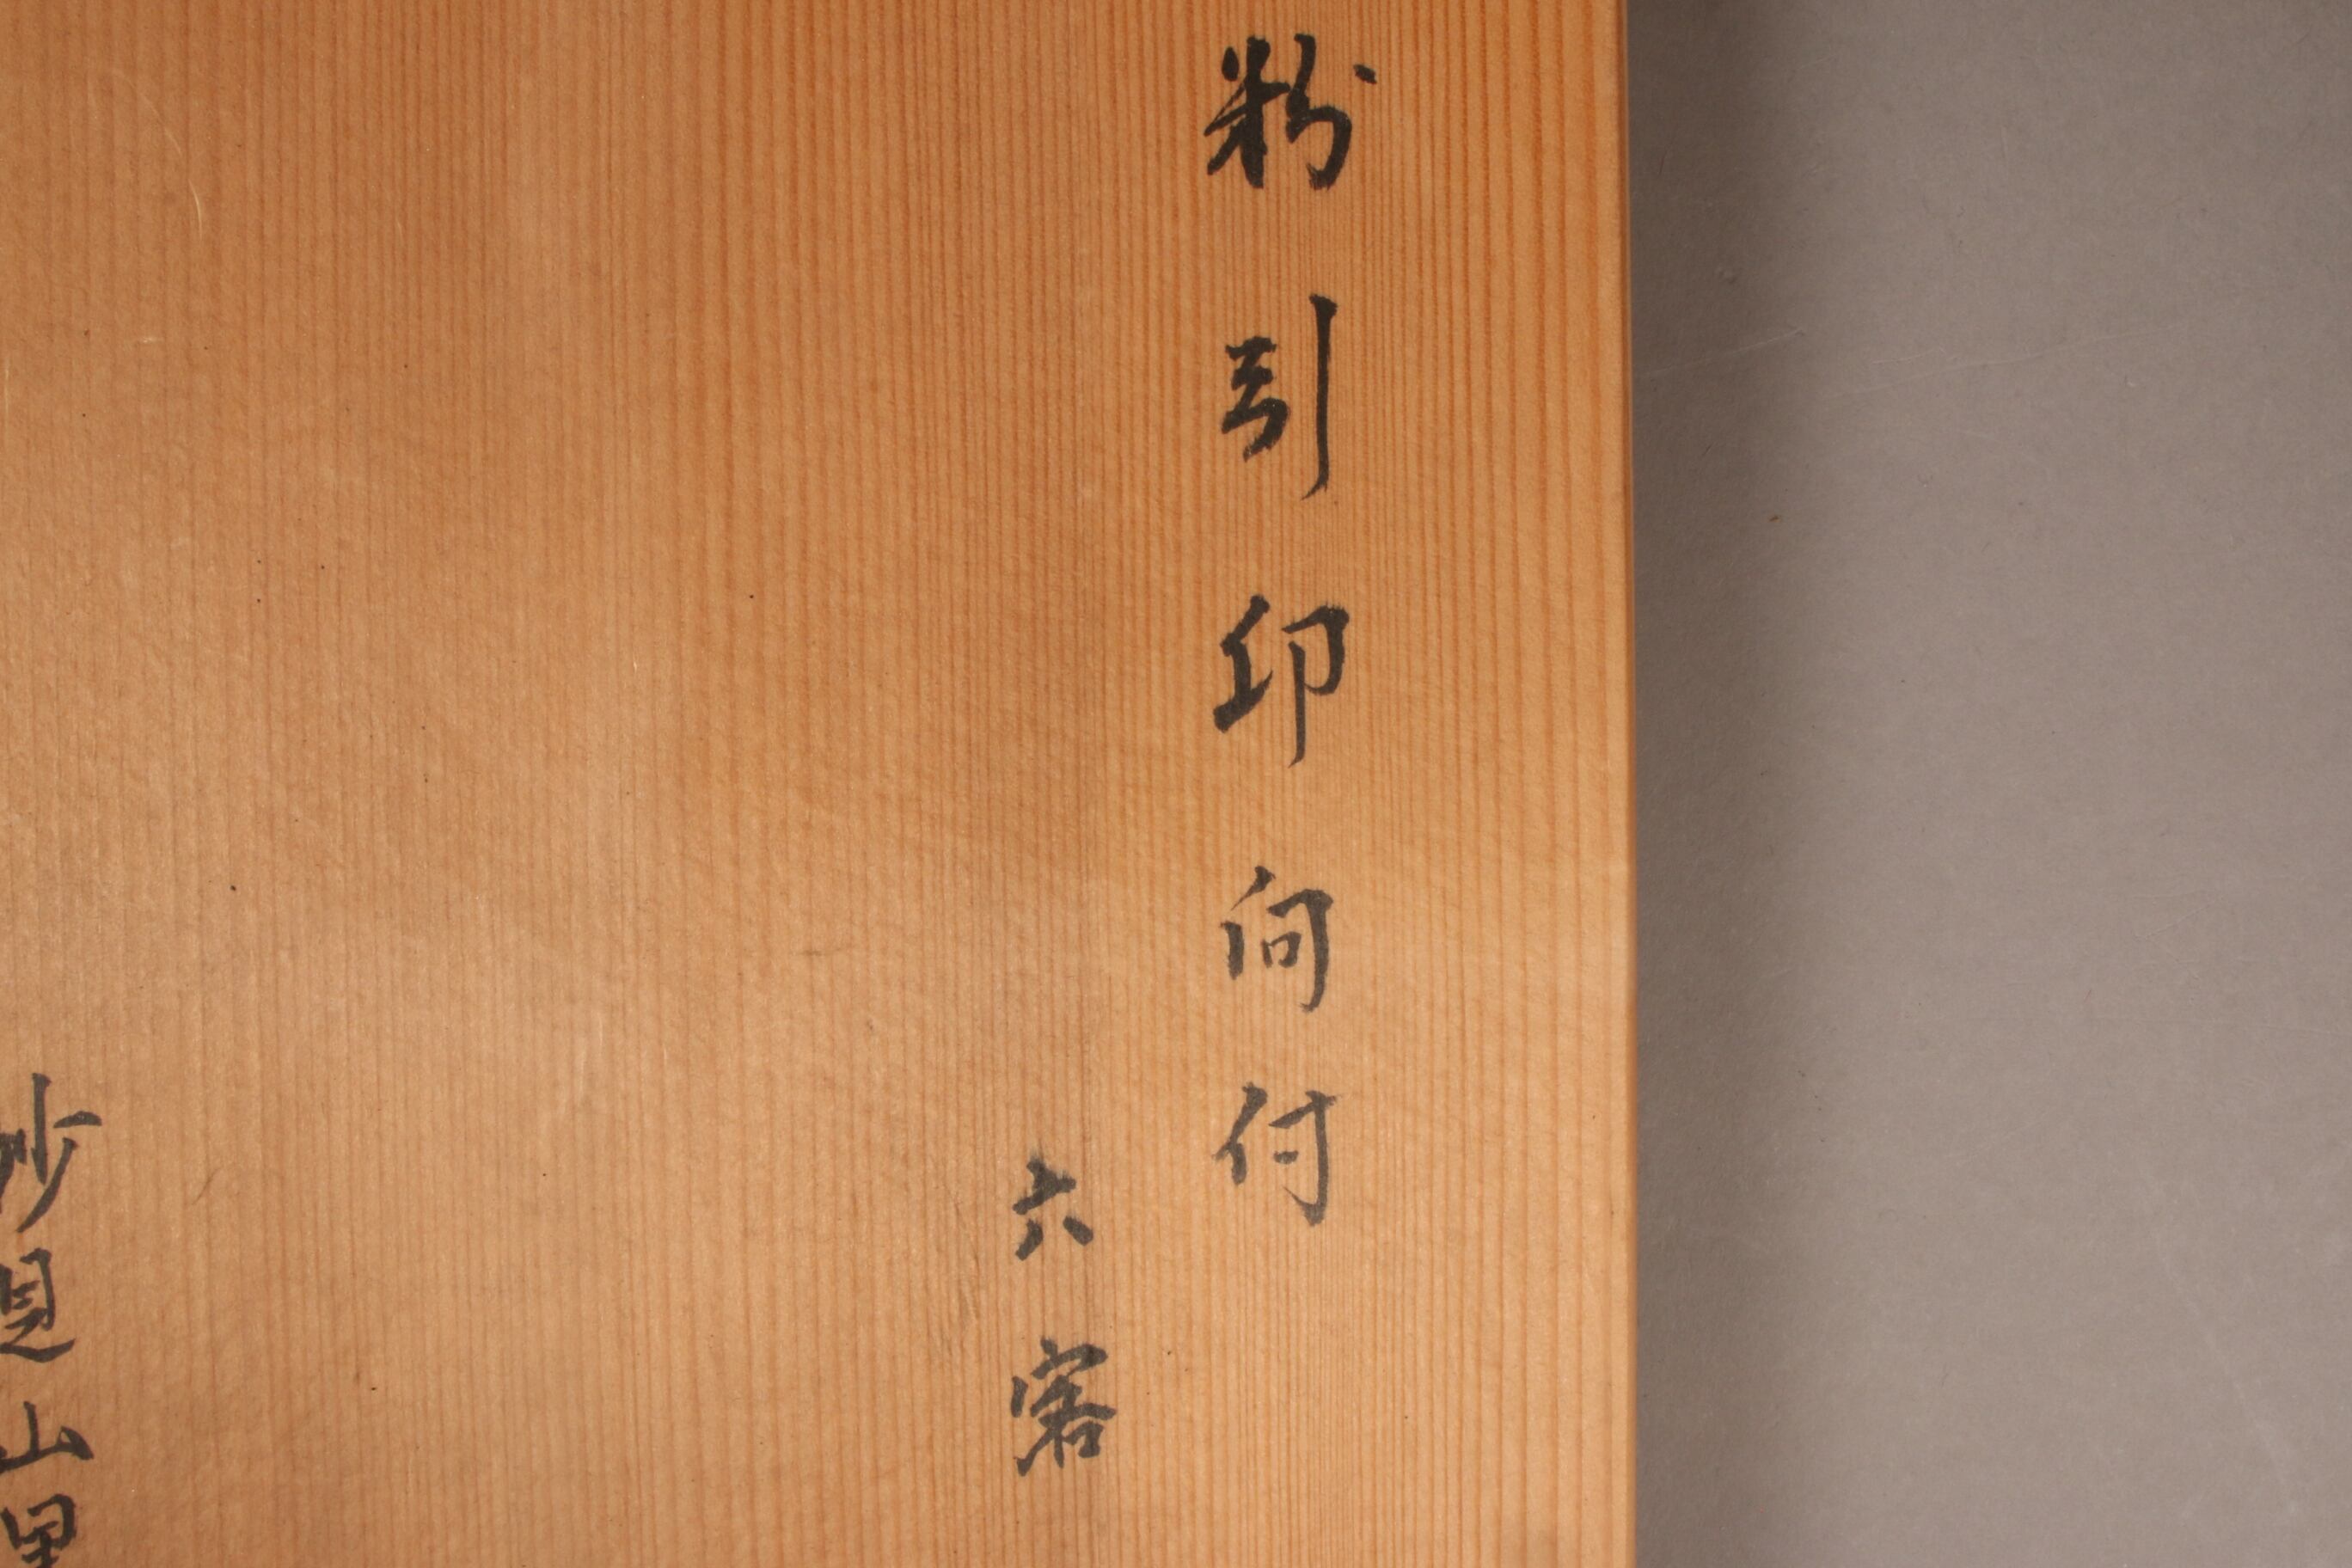 粉引印向付
六客
妙見山里